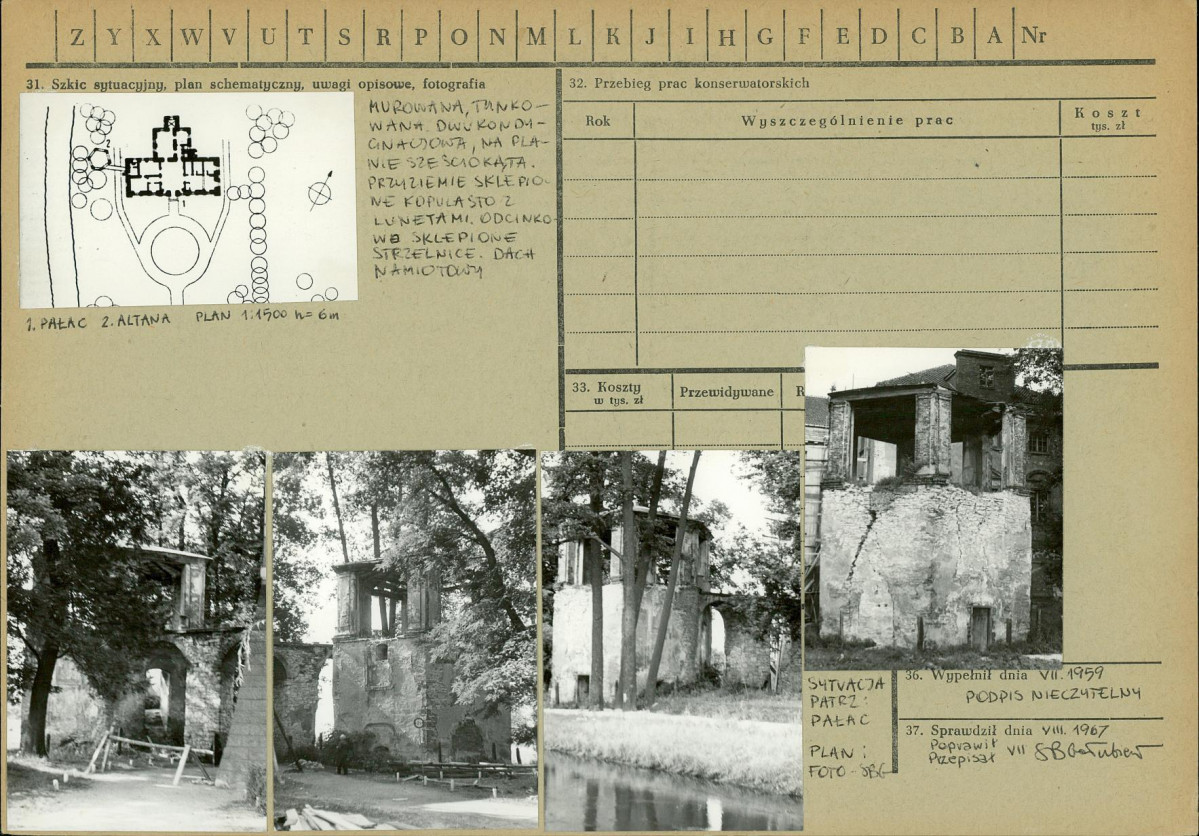 Z Y X W V U T S R P O N M L K J I H G F E D C B A Nr
31. Szkic sytuacyjny, plan schematyczny, uwagi opisowe, fotografia
2
1
MUROWANA, TYNKO-
WANA. DWUKONDY-
GNACJOWA, NA PLA-
NIE SZEŚCIOKĄTA.
PRZYZIEMIE SKLEPIO-
NE KOPULASTO Z
LUNETAMI. ODCINKO-
WO SKLEPIONE
STRZELNICE. DACH
NAMIOTOWY
1. PAŁAC 2. ALTANA PLAN 1:1500 h= 6m
32. Przebieg prac konserwatorskich
Rok
Wyszczególnienie prac
Koszt
tys. zł
33. Koszty
w tys. zł
Przewidywane
R
SYTUACJA
PATRZ:
PAŁAC
PLAN i
FOTO - SBG
36. Wypełnił dnia VII. 1959
PODPIS NIECZYTELNY
37. Sprawdził dnia VIII. 1967
Poprawił
Przepisał
VII